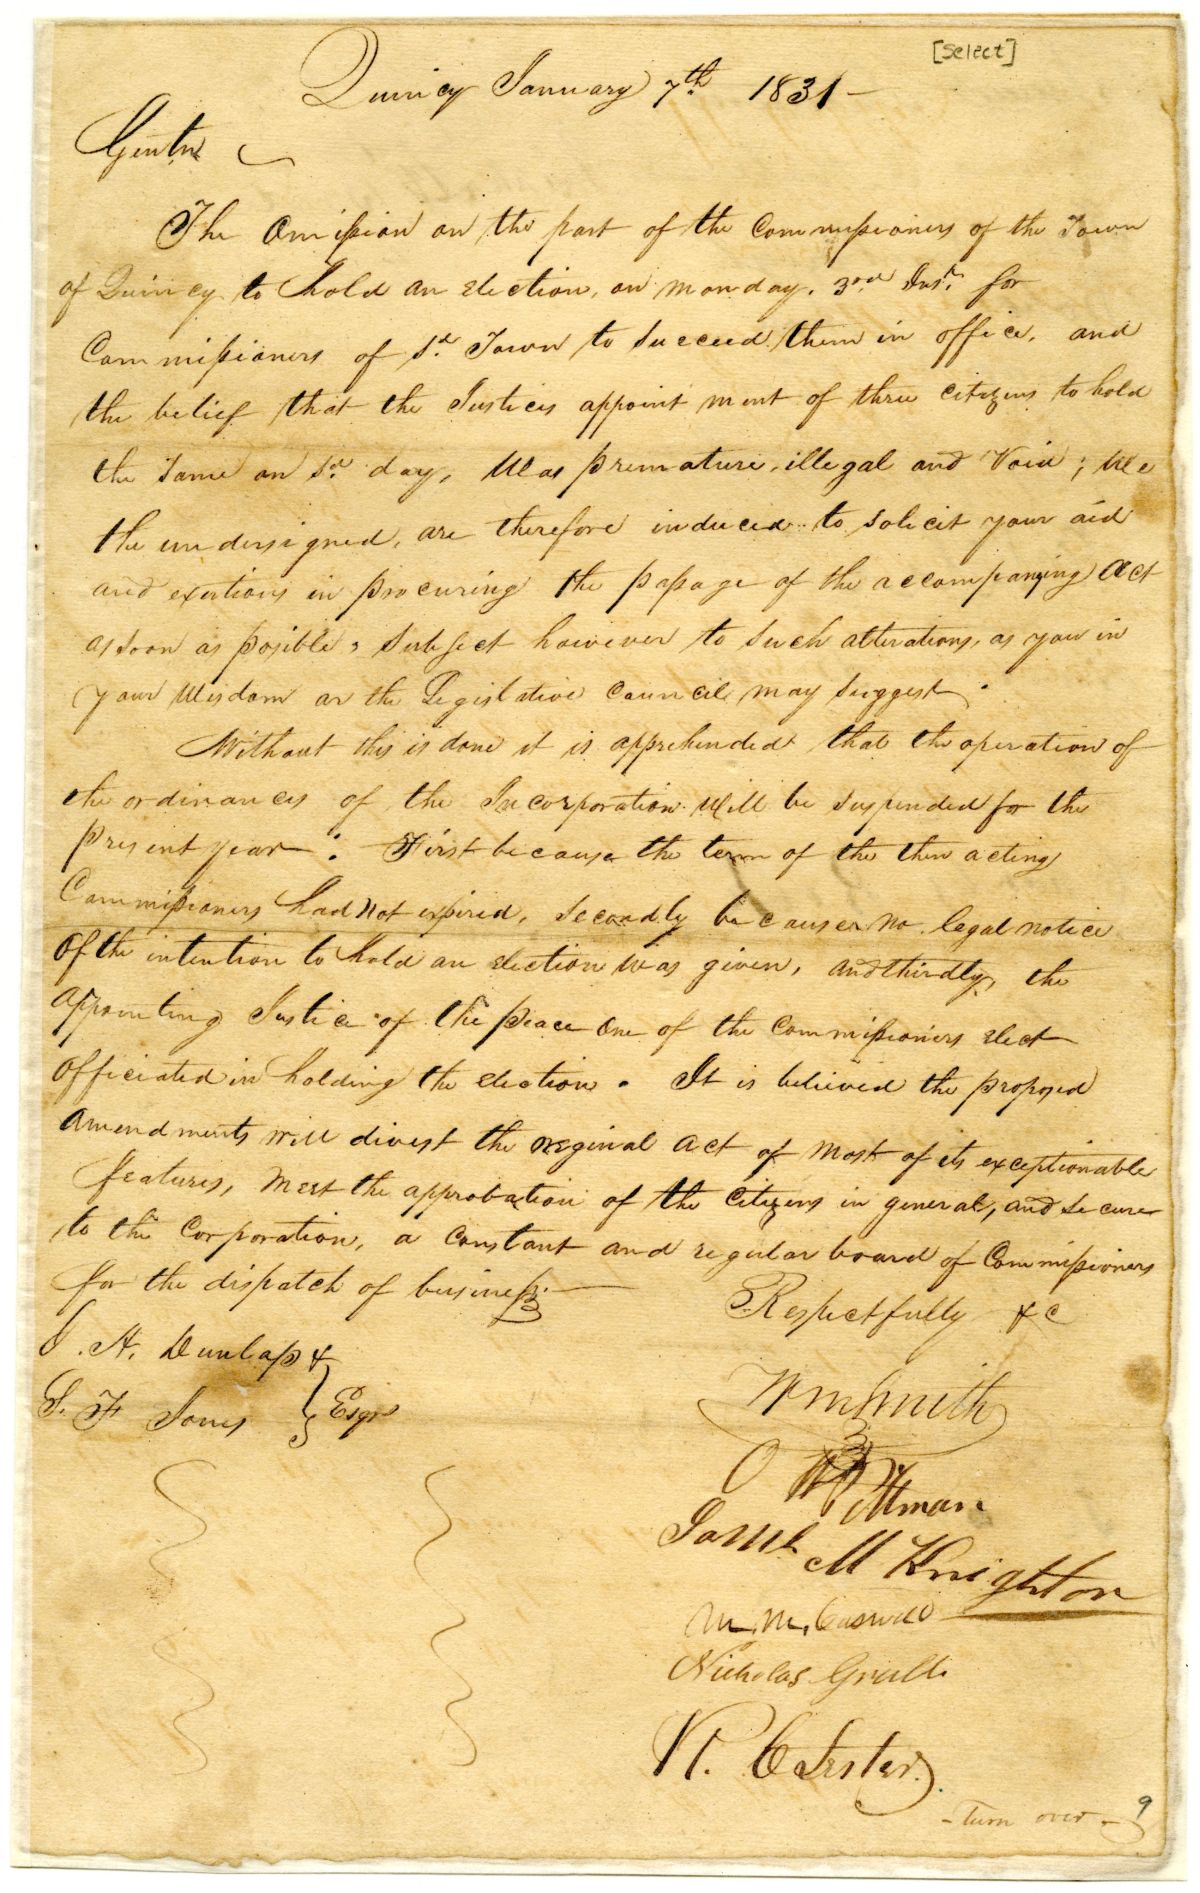 [Select]
Quincy January 7th 1831 -
Gentn
The Omission on the part of the Commissioners of the Town
of Quincy to hold an election, on monday. 3rd Inst. for
Commissioners of sd. Town to succeed them in office, and
the belief that the Justices appointment of three citizens to hold
the same on sd. day, Was premature, illegal and Void; We
the undersigned, are therefore induced to solicit your aid
and exertions in procuring the passage of the accompanying Act
as soon as posible, subject however to such alterations, as you in
your Wisdom or the Legislative Council may suggest.
Without this is done it is apprehended that the operation of
the ordinances of the Incorporation Will be suspended for the
present year: First because the term of the then acting
Commissioners had not expired, secondly because no legal notice
Of the intention to hold an election was given, and thirdly, the
appointing Justice of the peace One of the Commissioners elect
officiated in holding the election. It is believed the proposed
amendments will divest the original act of most of its exceptionable
features, meet the approbation of the citizens in general, and secure
to the Corporation, a constant and regular board of Commissioners
for the dispatch of business.
Respectfully &c
J. H. Dunlap &
S. F. Jones } Esqrs
Wm Smith
Pittman
M Knighton
M. M. Caswell
Nicholas
Lester
- Turn over -
9